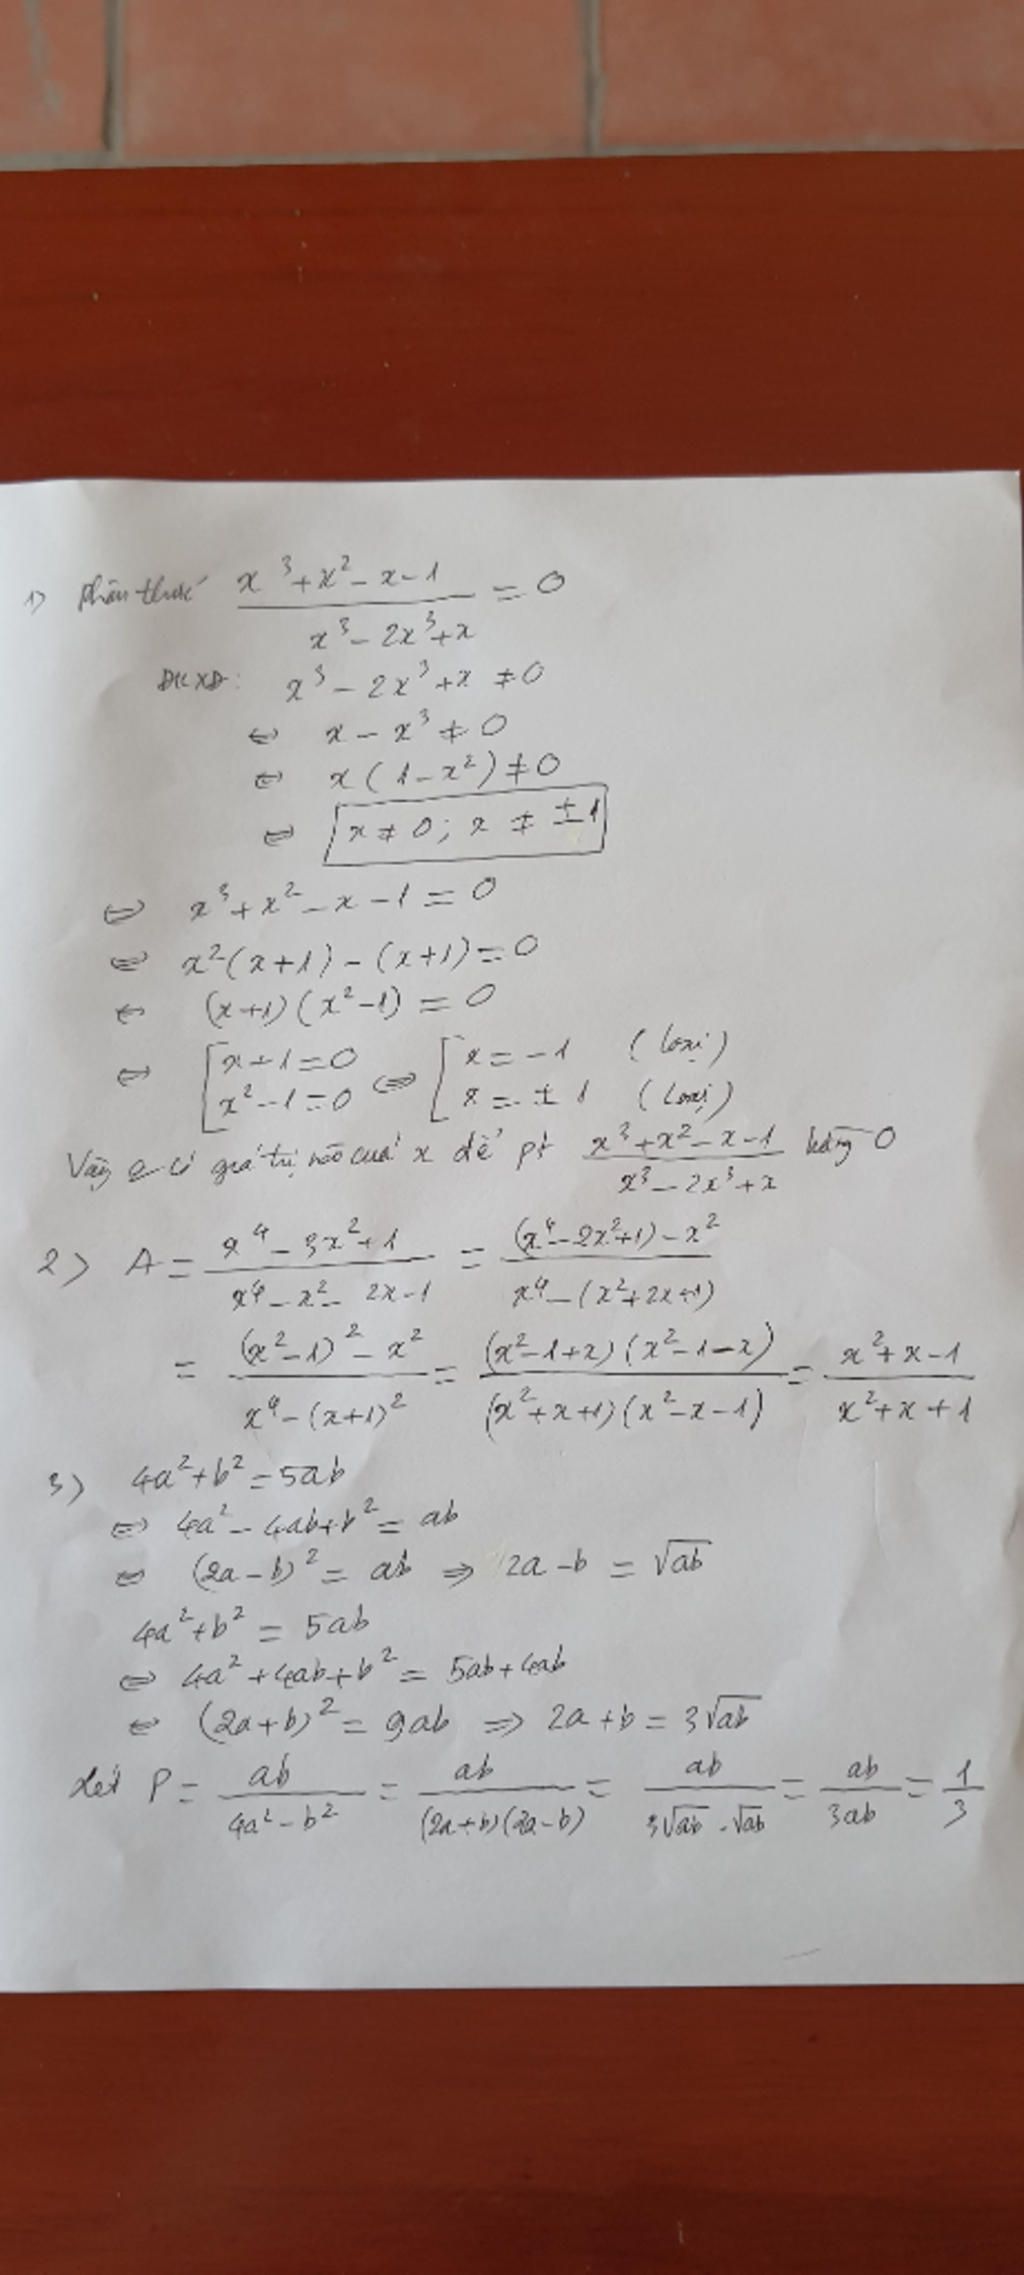 1) Phân thức (x³+x²-x-1)/(x³-2x³+x) = 0
ĐKXĐ: x³-2x³+x ≠ 0
⇔ x - x³ ≠ 0
⇔ x(1-x²) ≠ 0
⇔ x ≠ 0; x ≠ ±1
⇔ x³+x²-x-1 = 0
⇔ x²(x+1)-(x+1) = 0
⇔ (x+1)(x²-1) = 0
⇔ [x+1=0 ; x²-1=0 ⇔ [x=-1 (loại) ; x=±1 (loại)
Vậy có giá trị nào của x để pt (x³+x²-x-1)/(x³-2x³+x) bằng 0
2) A = (x⁴-3x²+1)/(x⁴-x²-2x-1) = ((x⁴-2x²+1)-x²)/(x⁴-(x²+2x+1))
= ((x²-1)²-x²)/(x⁴-(x+1)²) = ((x²-1+x)(x²-1-x))/((x²+x+1)(x²-x-1)) = (x²+x-1)/(x²+x+1)
3) 4a²+b² = 5ab
⇔ 4a²-4ab+b² = ab
⇔ (2a-b)² = ab ⇒ 2a-b = √ab
4a²+b² = 5ab
⇔ 4a²+4ab+b² = 5ab+4ab
⇔ (2a+b)² = 9ab ⇒ 2a+b = 3√ab
Xét P = ab/(4a²-b²) = ab/((2a+b)(2a-b)) = ab/(3√ab.√ab) = ab/3ab = 1/3